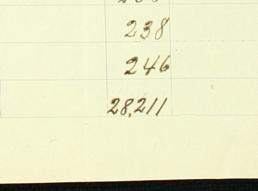 238
246
28,211